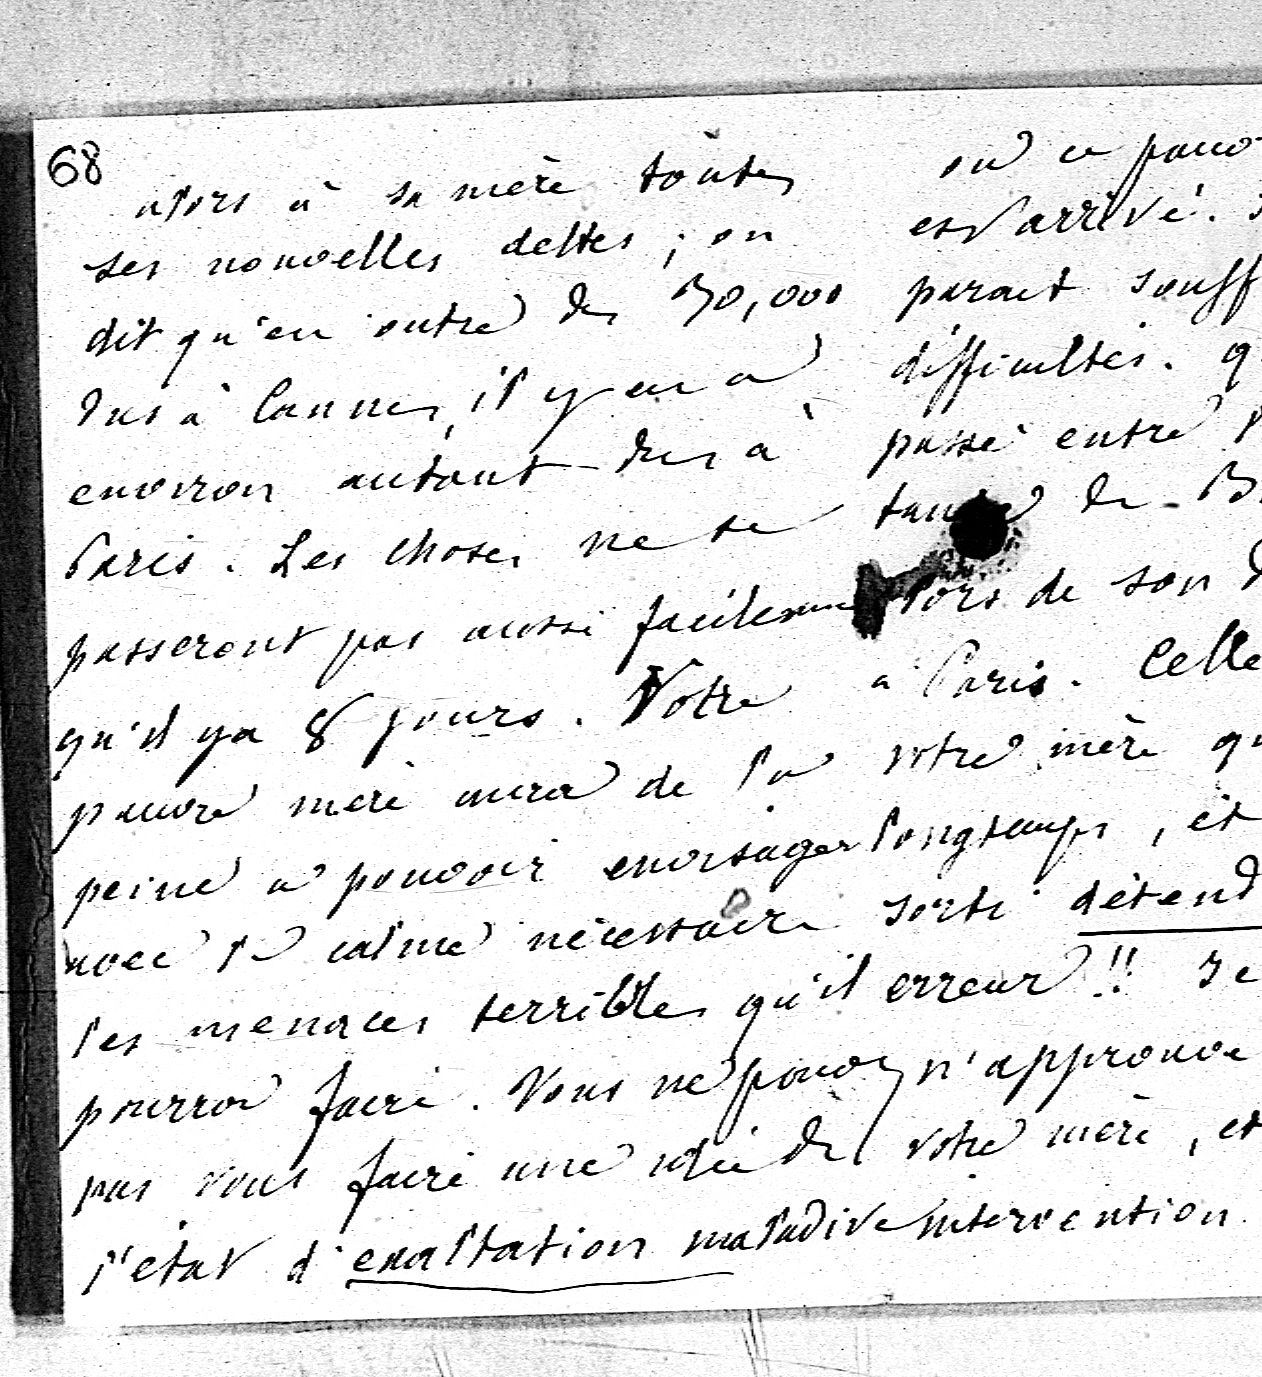 68
alors à sa mère toutes
ses nouvelles dettes ; on
dit qu'en outre des 50,000
dus à Cannes, il y en a
environ autant dus à
Paris. Les choses ne se
passeront pas aussi facilement
qu'il y a 8 jours. Votre
pauvre mère aura de la
peine à pouvoir envisager
avec le calme nécessaire
les menaces terribles qu'il
pourra faire. Vous ne pouvez
pas vous faire une idée de
l'état d'exaltation maladive
où ce pauv
est arrivé.
parait souff
difficultés. q
passé entre l
tante de B
lors de son d
à Paris. Celle
votre mère qu
longtemps, et
sorte détend
erreur !! Je
n'approuve
votre mère, et
intervention